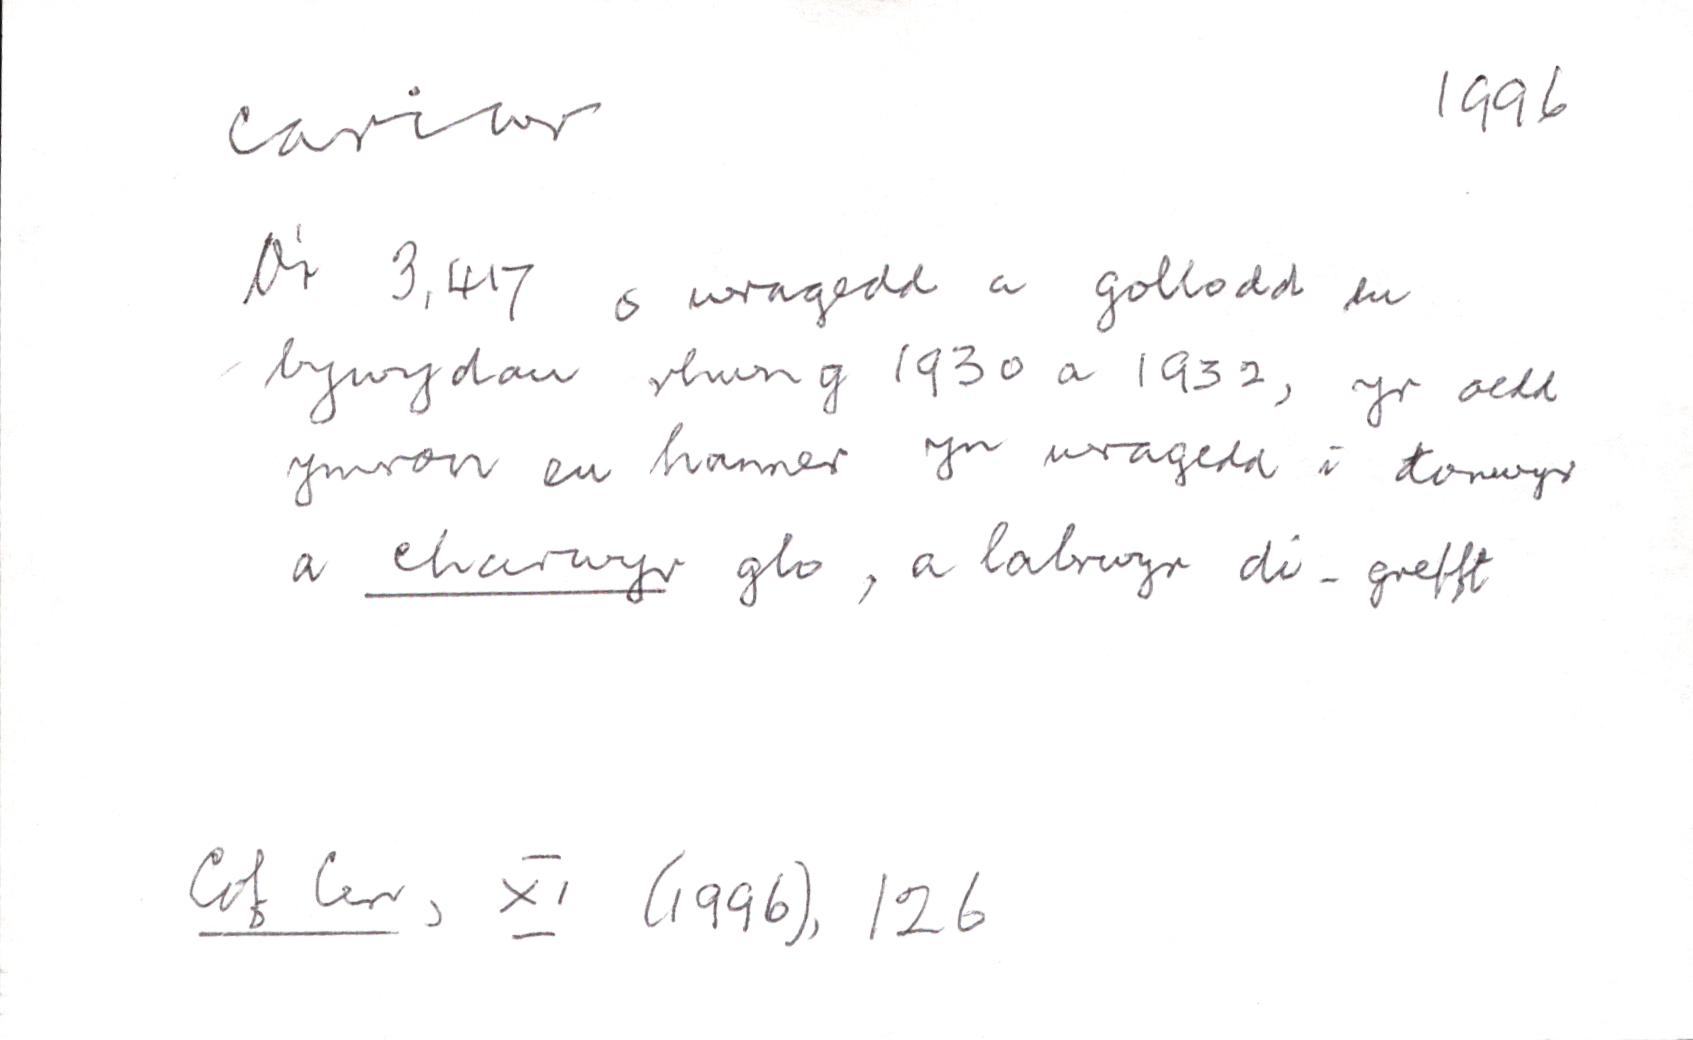 cariwr 1996
O'r 3,417 o wragedd a gollodd eu
bywydau rhwng 1930 a 1932, yr oedd
ymron eu hanner yn wragedd i dorwyr
a chariwyr glo, a labrwyr di-grefft
Cof Cen, XI (1996), 126